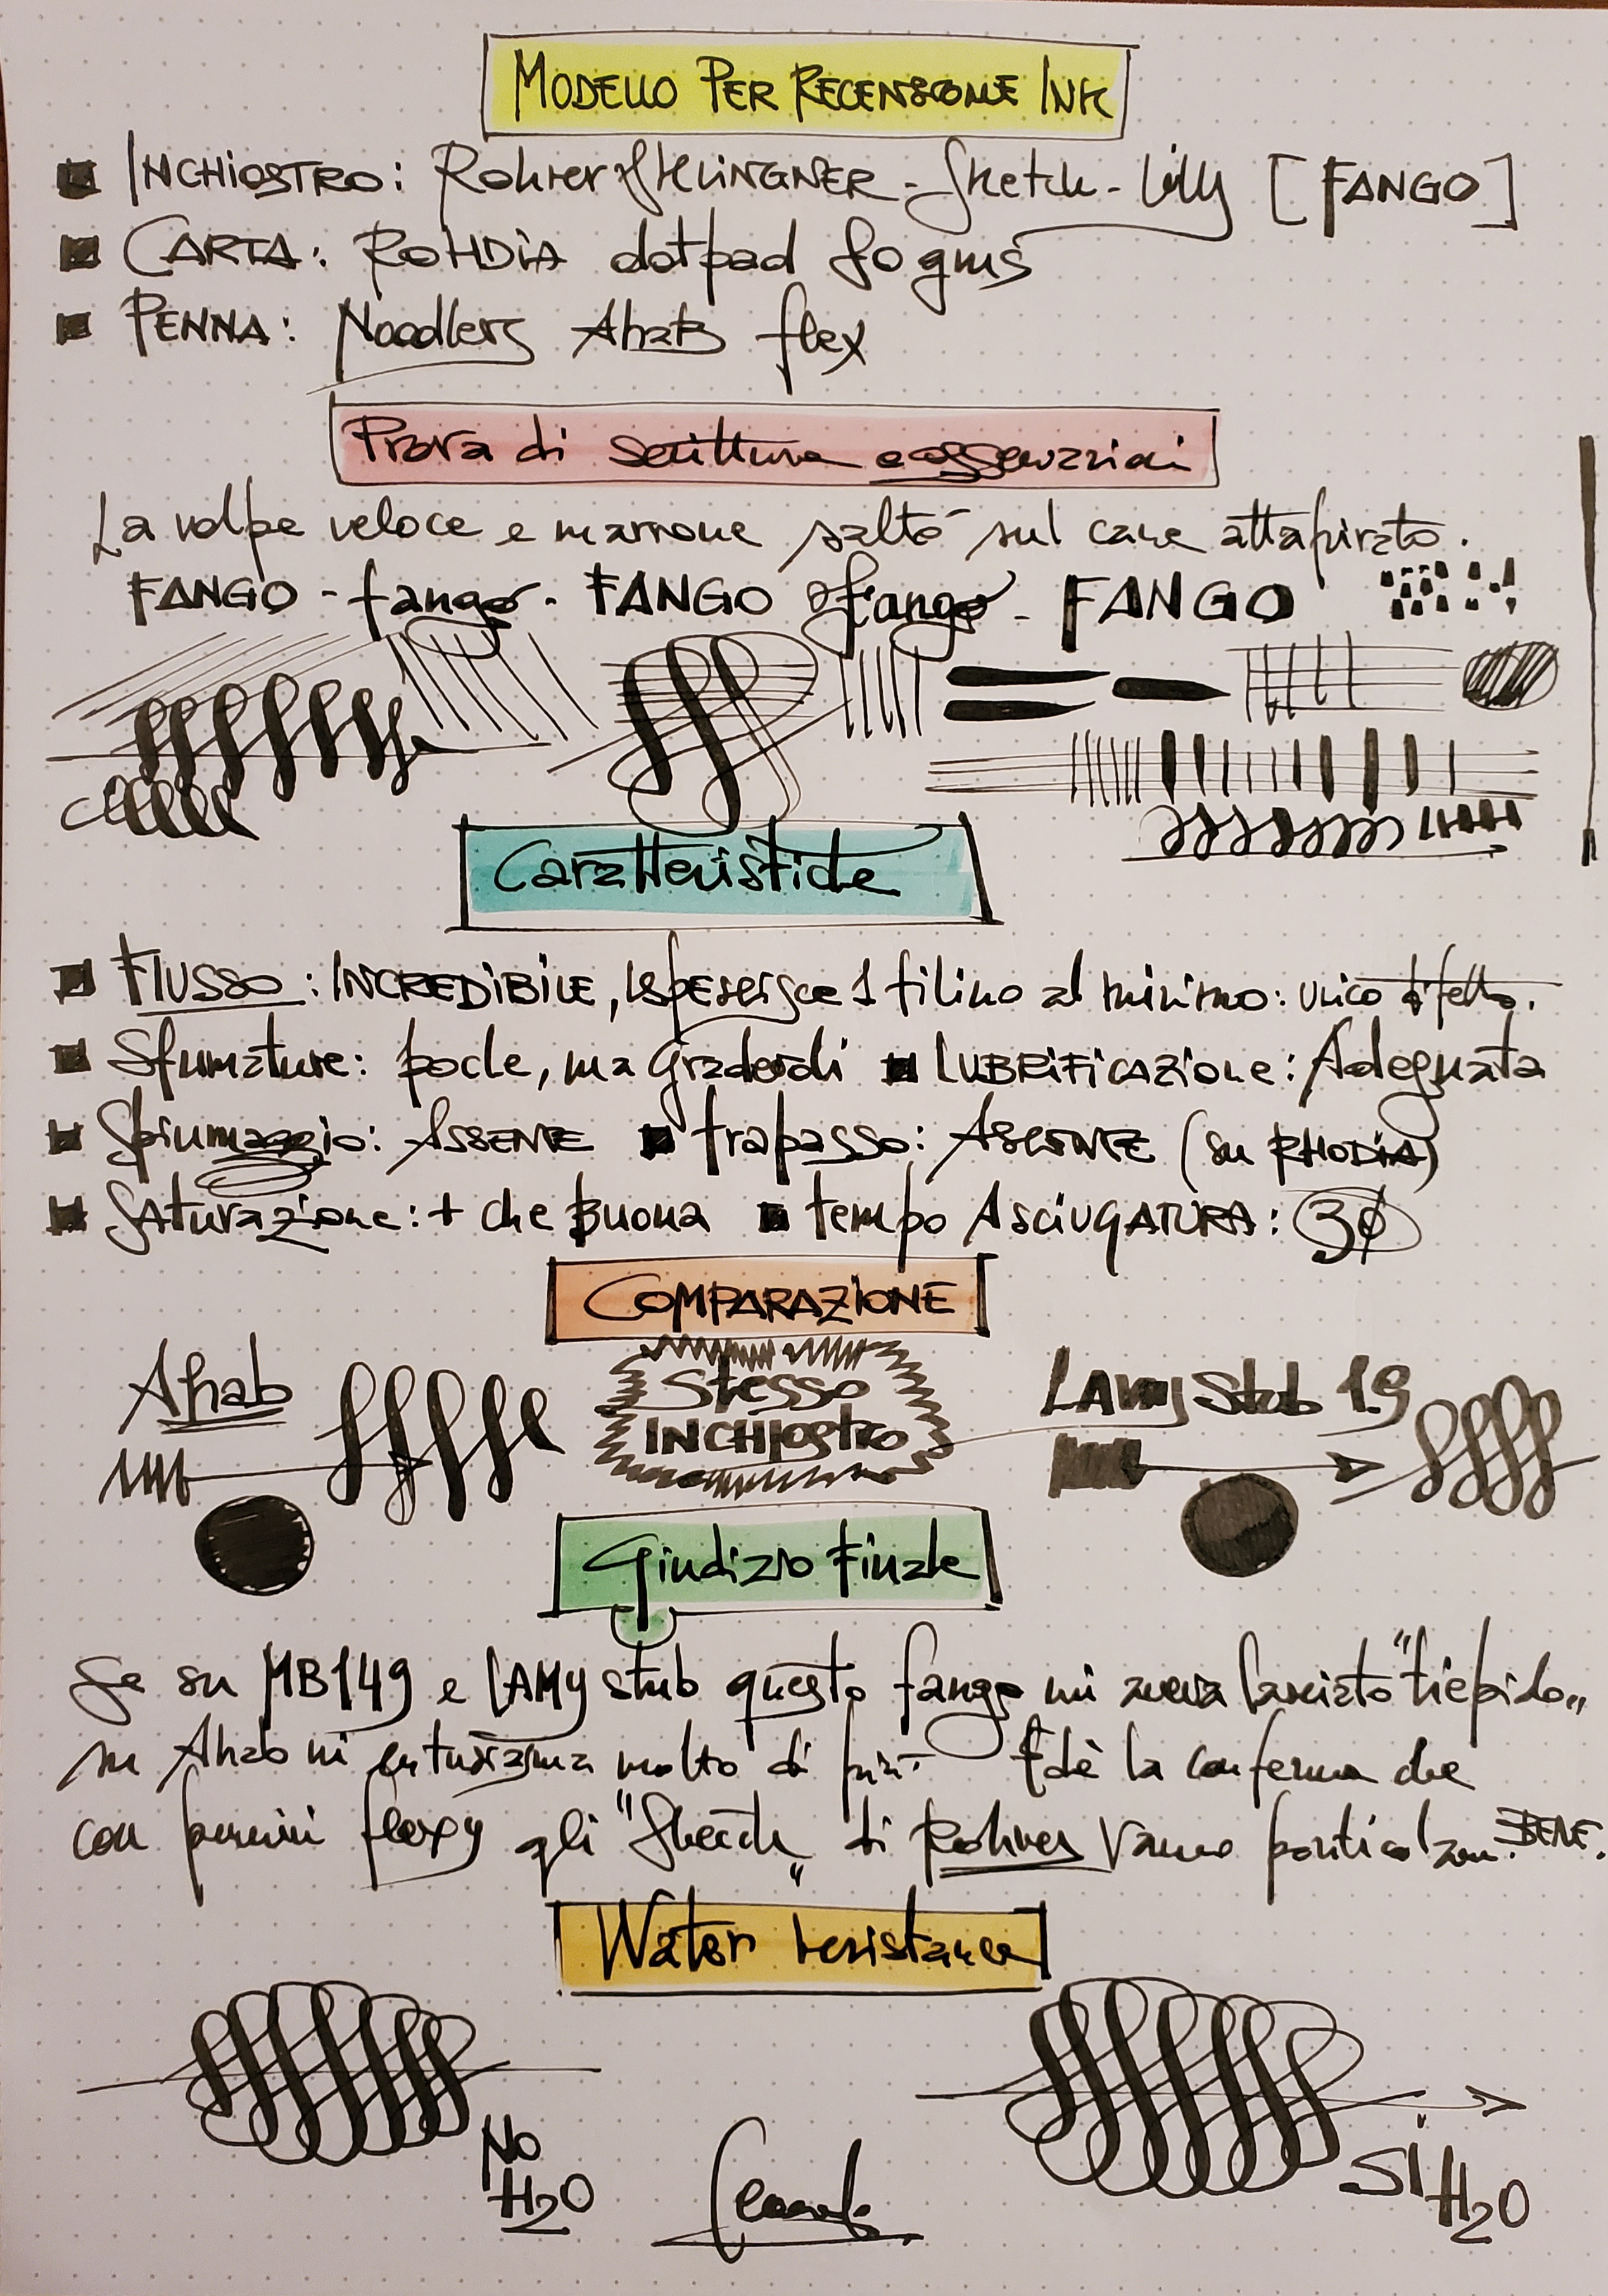 MODELLO PER RECENSIONE INK
INCHIOSTRO: Rohrer & KLINGNER - Sketch - Lilly [FANGO]
CARTA: ROHDIA dotpad 80 gms
PENNA: Noodlers Ahab flex
Prova di scrittura e osservazioni
La volpe veloce e marrone saltò sul cane attapirato.
FANGO - fango - FANGO fango - FANGO
Caratteristiche
FLUSSO: INCREDIBILE, ispessisce 1 filino al minimo: unico difetto.
Sfumature: poche, ma gradevoli LUBRIFICAZIONE: Adeguata
Spiumaggio: ASSENTE trapasso: ASSENTE (su RHODIA)
SATURAZIONE: + che Buona tempo ASCIUGATURA: 30
COMPARAZIONE
Ahab
Stesso
INCHIOSTRO
LAMY Stub 1.9
Giudizio Finale
Se su MB149 e LAMY stub questo fango mi aveva lasciato "tiepido"
su Ahab mi entusiasma molto di più. Ed è la conferma che
con pennini flexy gli "Sketch" di Rohrer vanno particolarm. BENE.
Water resistance
No
H2O
SI H2O